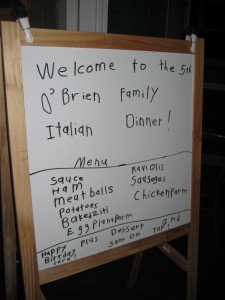 Welcome to the 5th
O'Brien Family
Italian Dinner!
Menu
Sauce
Ham
meatballs
Potatoes
Baked Ziti
Eggplant Parm
Raviolis
Sausages
Chicken Parm
Happy
Birthday
Plus Dessert